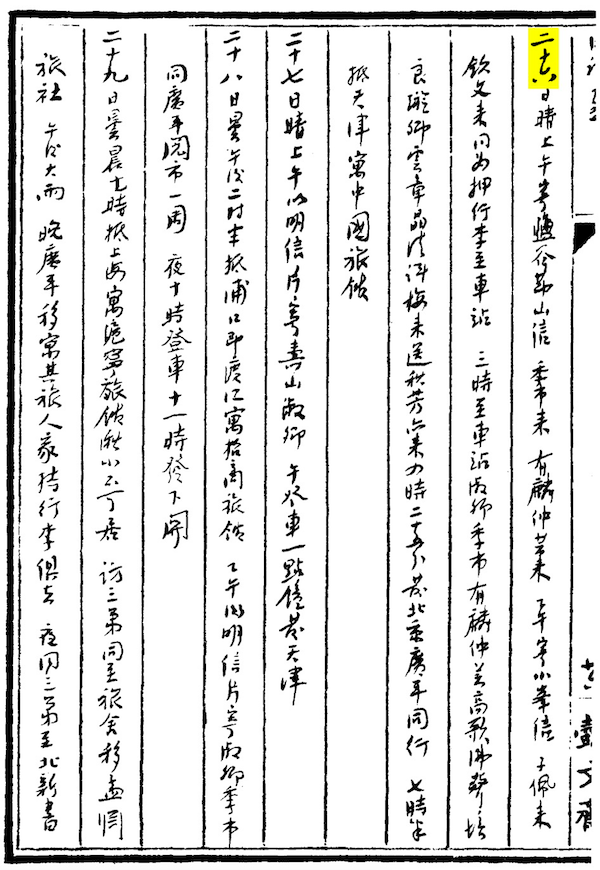 二十六日晴上午寄鹽谷節山信 季市来 有麟仲芸来 下午寄小峯信 子佩来
欽文来同为押行李至車站 三時至車站淑卿季市有麟仲芸高歌沸聲培
良璇卿雲章晶清評梅来送秋芳亦来四時二十五分发北京廣平同行 七時半
抵天津寓中國旅馆
二十七日晴上午以明信片寄壽山淑卿 午登車一點鐘发天津
二十八日曇午後二时半抵浦口即渡江寓招商旅馆 下午以明信片寄淑卿季市
同廣平閲市一周 夜十時登車十一時發下関
二十九日曇晨七時抵上海寓滬寧旅馆湫小不可居 訪三弟同至旅舍移孟渊
旅社 午後大雨 晚廣平移寓其旅人家持行李俱去 夜同三弟至北新書